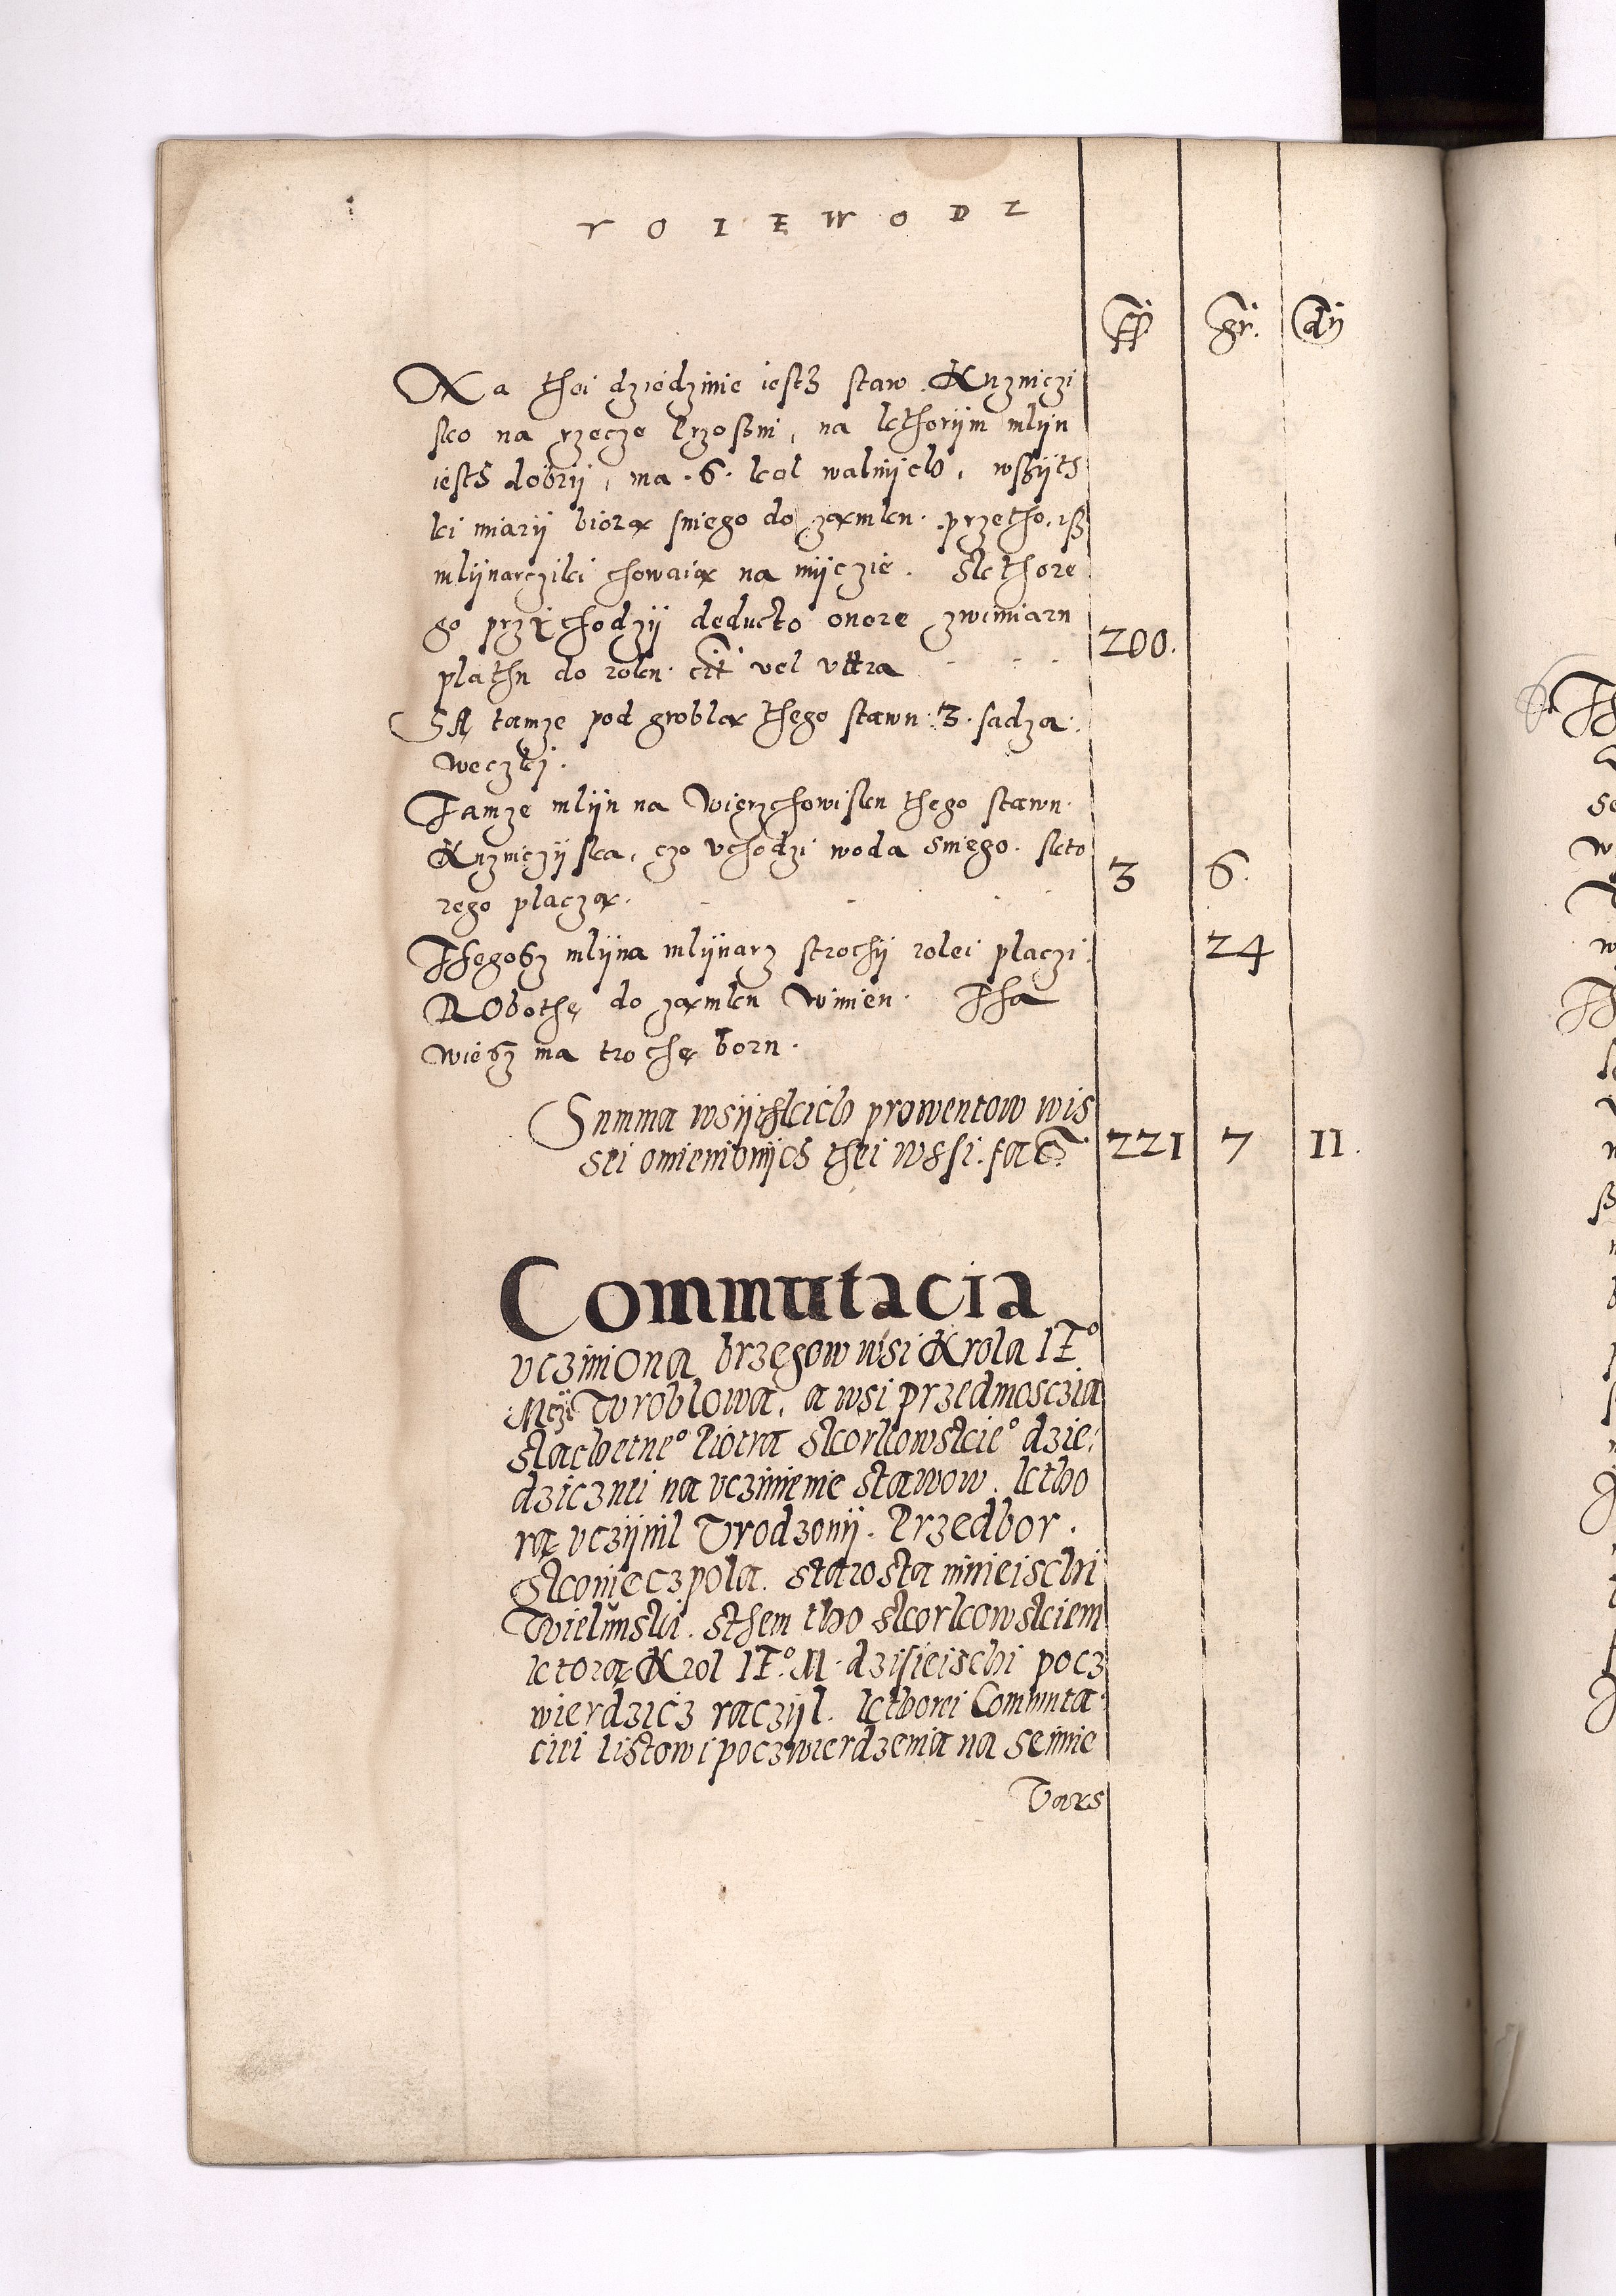 VOIEWODZ
ff gr. dij
Na thei dziedzinie iesth staw Kuzniczi
sko na rzecze Przosni, na kthorijm mlijn
iesth dobrij, ma .6. kol walnijch, wssijth
ki miarij biorą sniego do zamku. przetho, iß
mlijnarcziki chowaią na mijczie. Skthore
go przijchodzij deducto onere zwimiaru
plathu do roku. cit vel vltra 200.
SĄ tamze pod groblą thego stawu .3. sadza:
weczki.
Tamze mlijn na Wierzchowisku thego stawu
Kuzniczijska, czo vchodzi woda sniego. skto
rego placzą. 3 6.
Thegosz mlijna mlijnarz strochij rolei placzi. 24
RObothę do zamku Winien. Tha
wiesz ma trochę boru.
Summa wsijthkich prowentow wis
sei omienionijch thei wssi. fac. 221 7 11.
Commutacia
vcziniona brzegow wsi Krola IE°
Mczi Wroblowa, a wsi Przedmosczia
slachetne° Piotra Skorkowskie° dzie:
dzicznei na vczinienie stawow. ktho
rą vczijnil Vrodzonij. Przedbor.
Skonieczpola. starosta ninieischi
Wielunski. sthem tho Skorkowskiem
ktorą Krol IE.° M. dzisieischi pocz
wierdzicz raczijl. kthorei Commuta:
ciei listow i poczwierdzenia na seimie
Vars